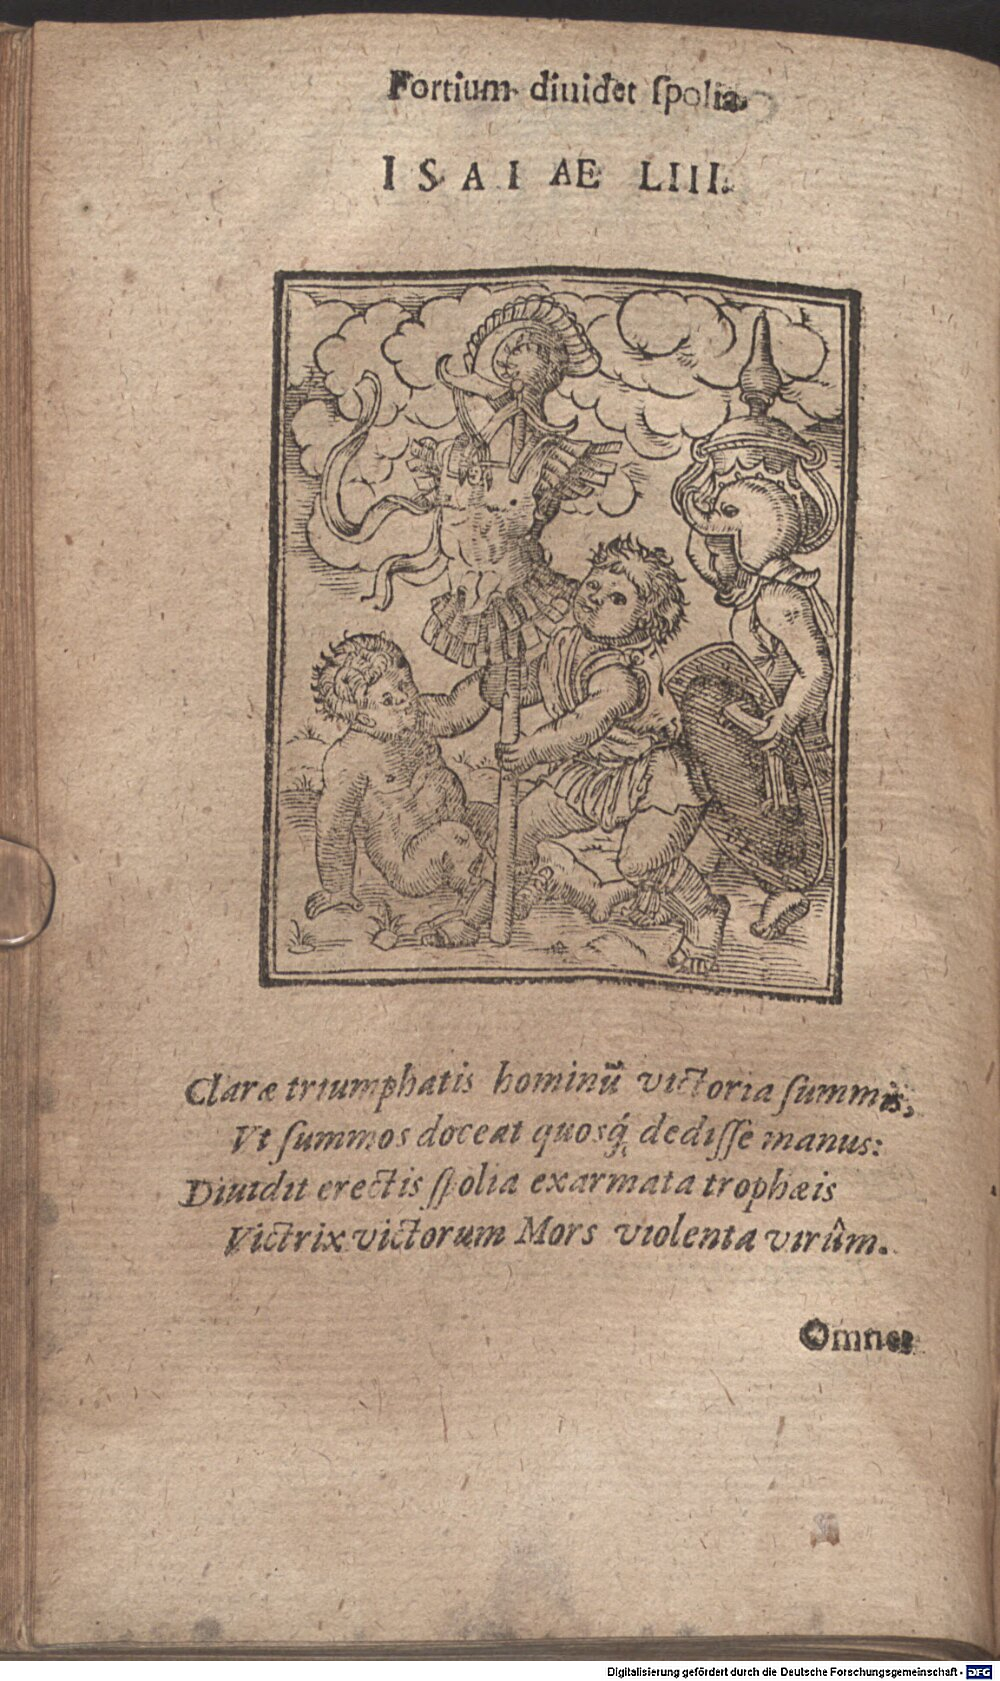 Fortium diuidet ſpolia.
ISAIAE LIII.
Claræ triumphatis hominū victoria ſummis,
Vt ſummos doceat quosq́; dediſſe manus:
Diuidit erectis ſpolia exarmata trophæis
Victrix victorum Mors violenta virûm.
Omnes
Digitalisierung gefördert durch die Deutsche Forschungsgemeinschaft - DFG